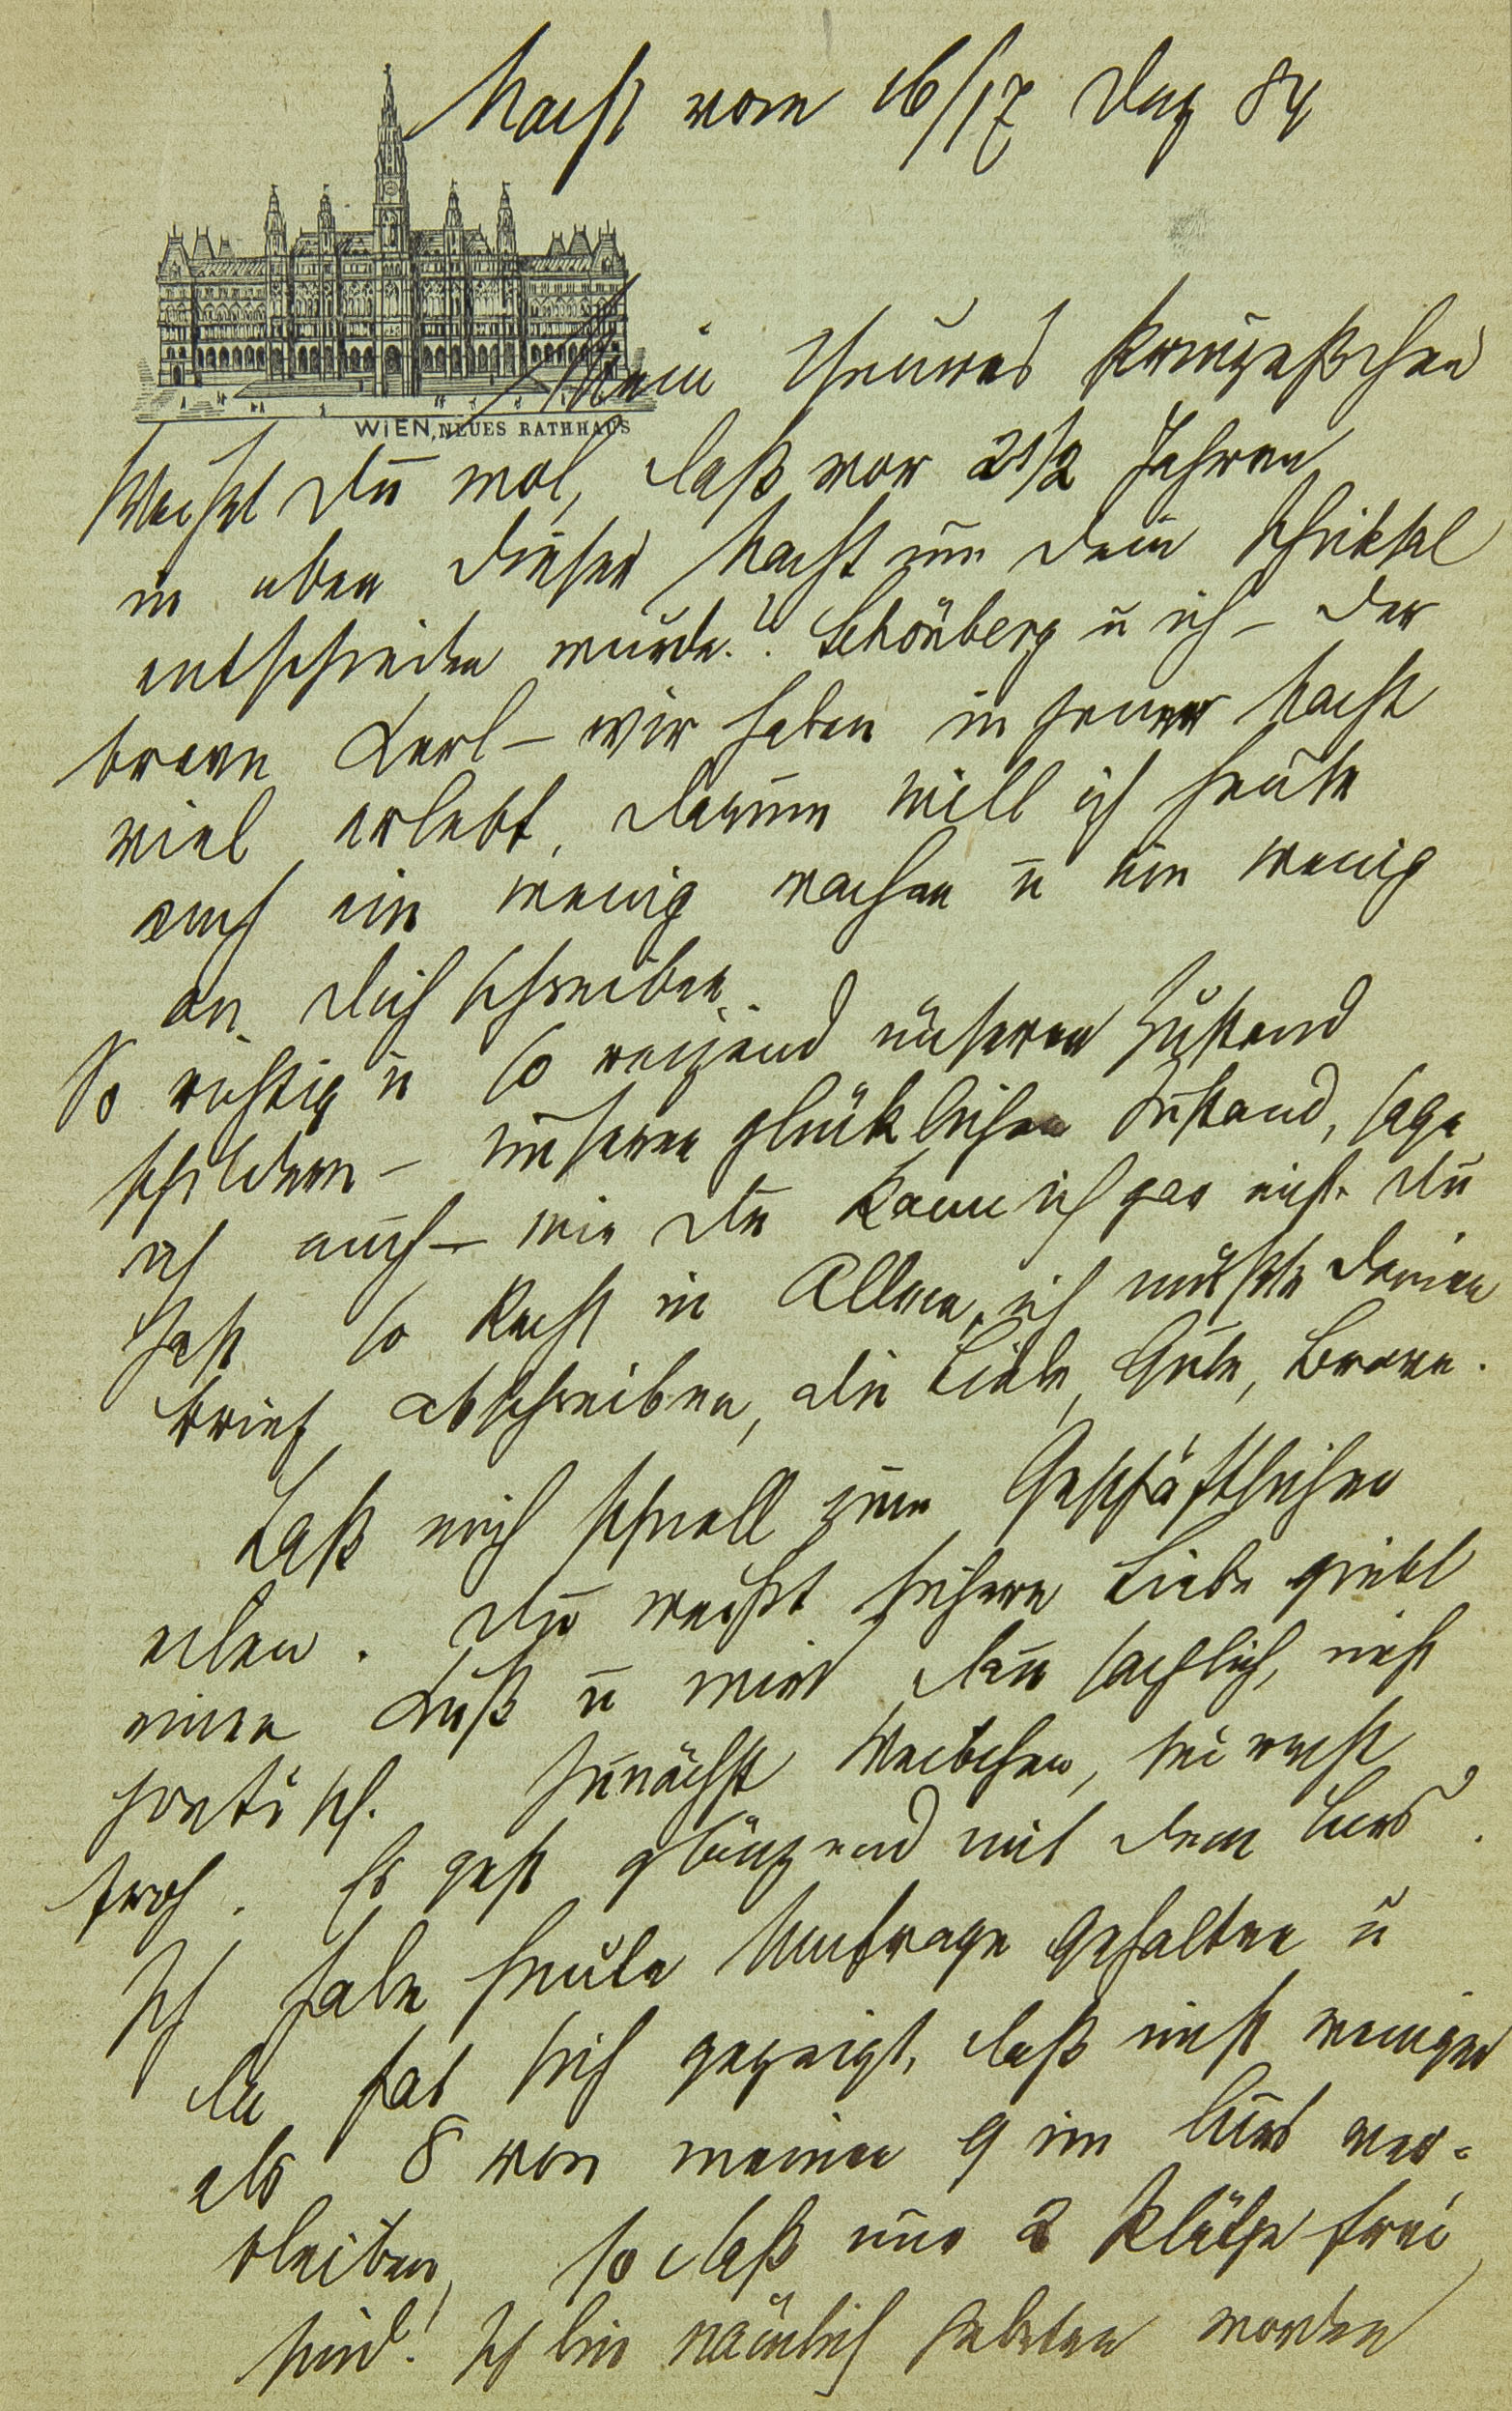 Nacht vom 16/17 Dez 84
WIEN, NEUES RATHHAUS
Mein theures Prinzeßchen
Weißt Du wol, daß vor 2 1/2 Jahren
in eben dieser Nacht um dein Schiksal
entschieden wurde? Schönberg u ich – der
brave Kerl – wir haben in jener Nacht
viel erlebt, darum will ich heute
auch ein wenig wachen u ein wenig
an Dich schreiben.
So richtig u so reizend unseren Zustand
schildern – unseren glüklichen Zustand, sage
ich auch – wie Du kann ich gar nicht. Du
hast so Recht in Allem, ich müßte deinen
Brief abschreiben, du Liebe, Gute, Brave.
Laß mich schnell zum Geschäftlichen
eilen. Du weißt sichere Liebe giebt
einen Kuß u wird dann sachlich, nicht
poetisch. Zunächst Weibchen, sei recht
froh. Es geht glänzend mit dem Curs.
Ich habe heute Umfrage gehalten u
da hat sich gezeigt, daß nicht weniger
als 8 von meinen 9 im Curs ver-
bleiben, so daß nur 2 Plätze frei
sind! Ich bin nämlich gebeten worden